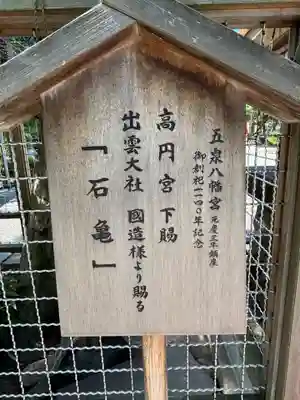 五泉八幡宮 元慶三年鎮座
御創祀一一四〇年記念
高円宮 下賜
出雲大社 國造様より賜る
「石亀」